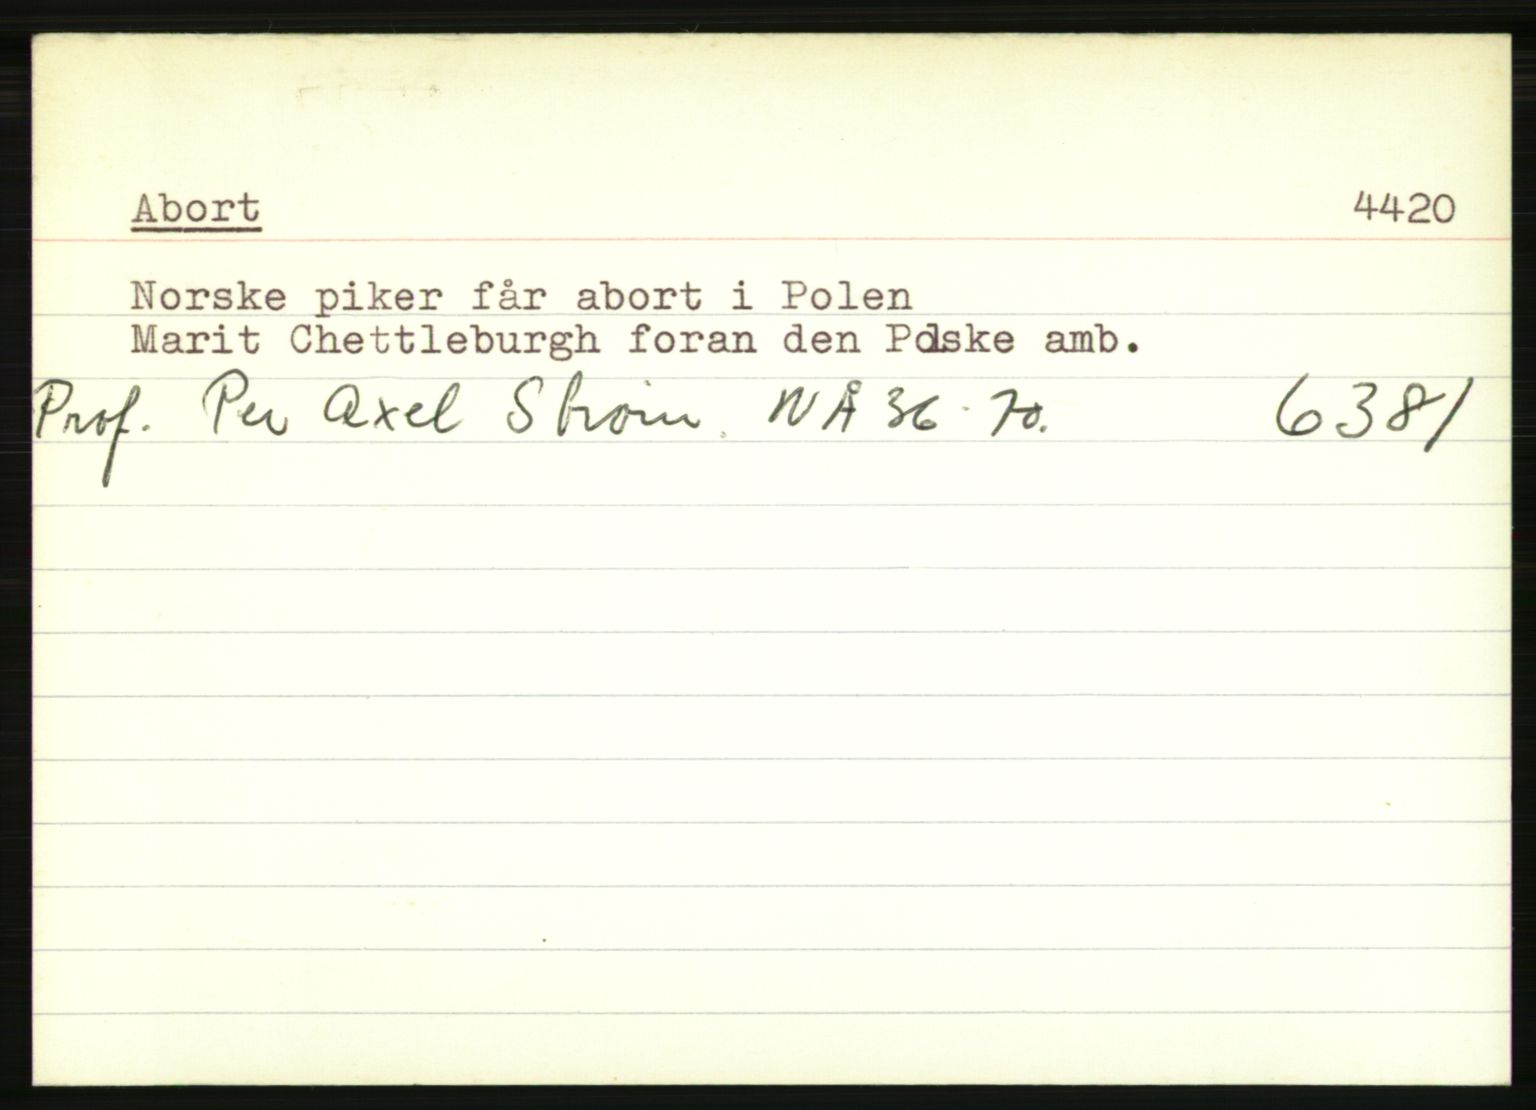 Abort 4420
Norske piker får abort i Polen
Marit Chettleburgh foran den Polske amb.
Prof. Per Axel Strøm. NÅ 36-70. 6381